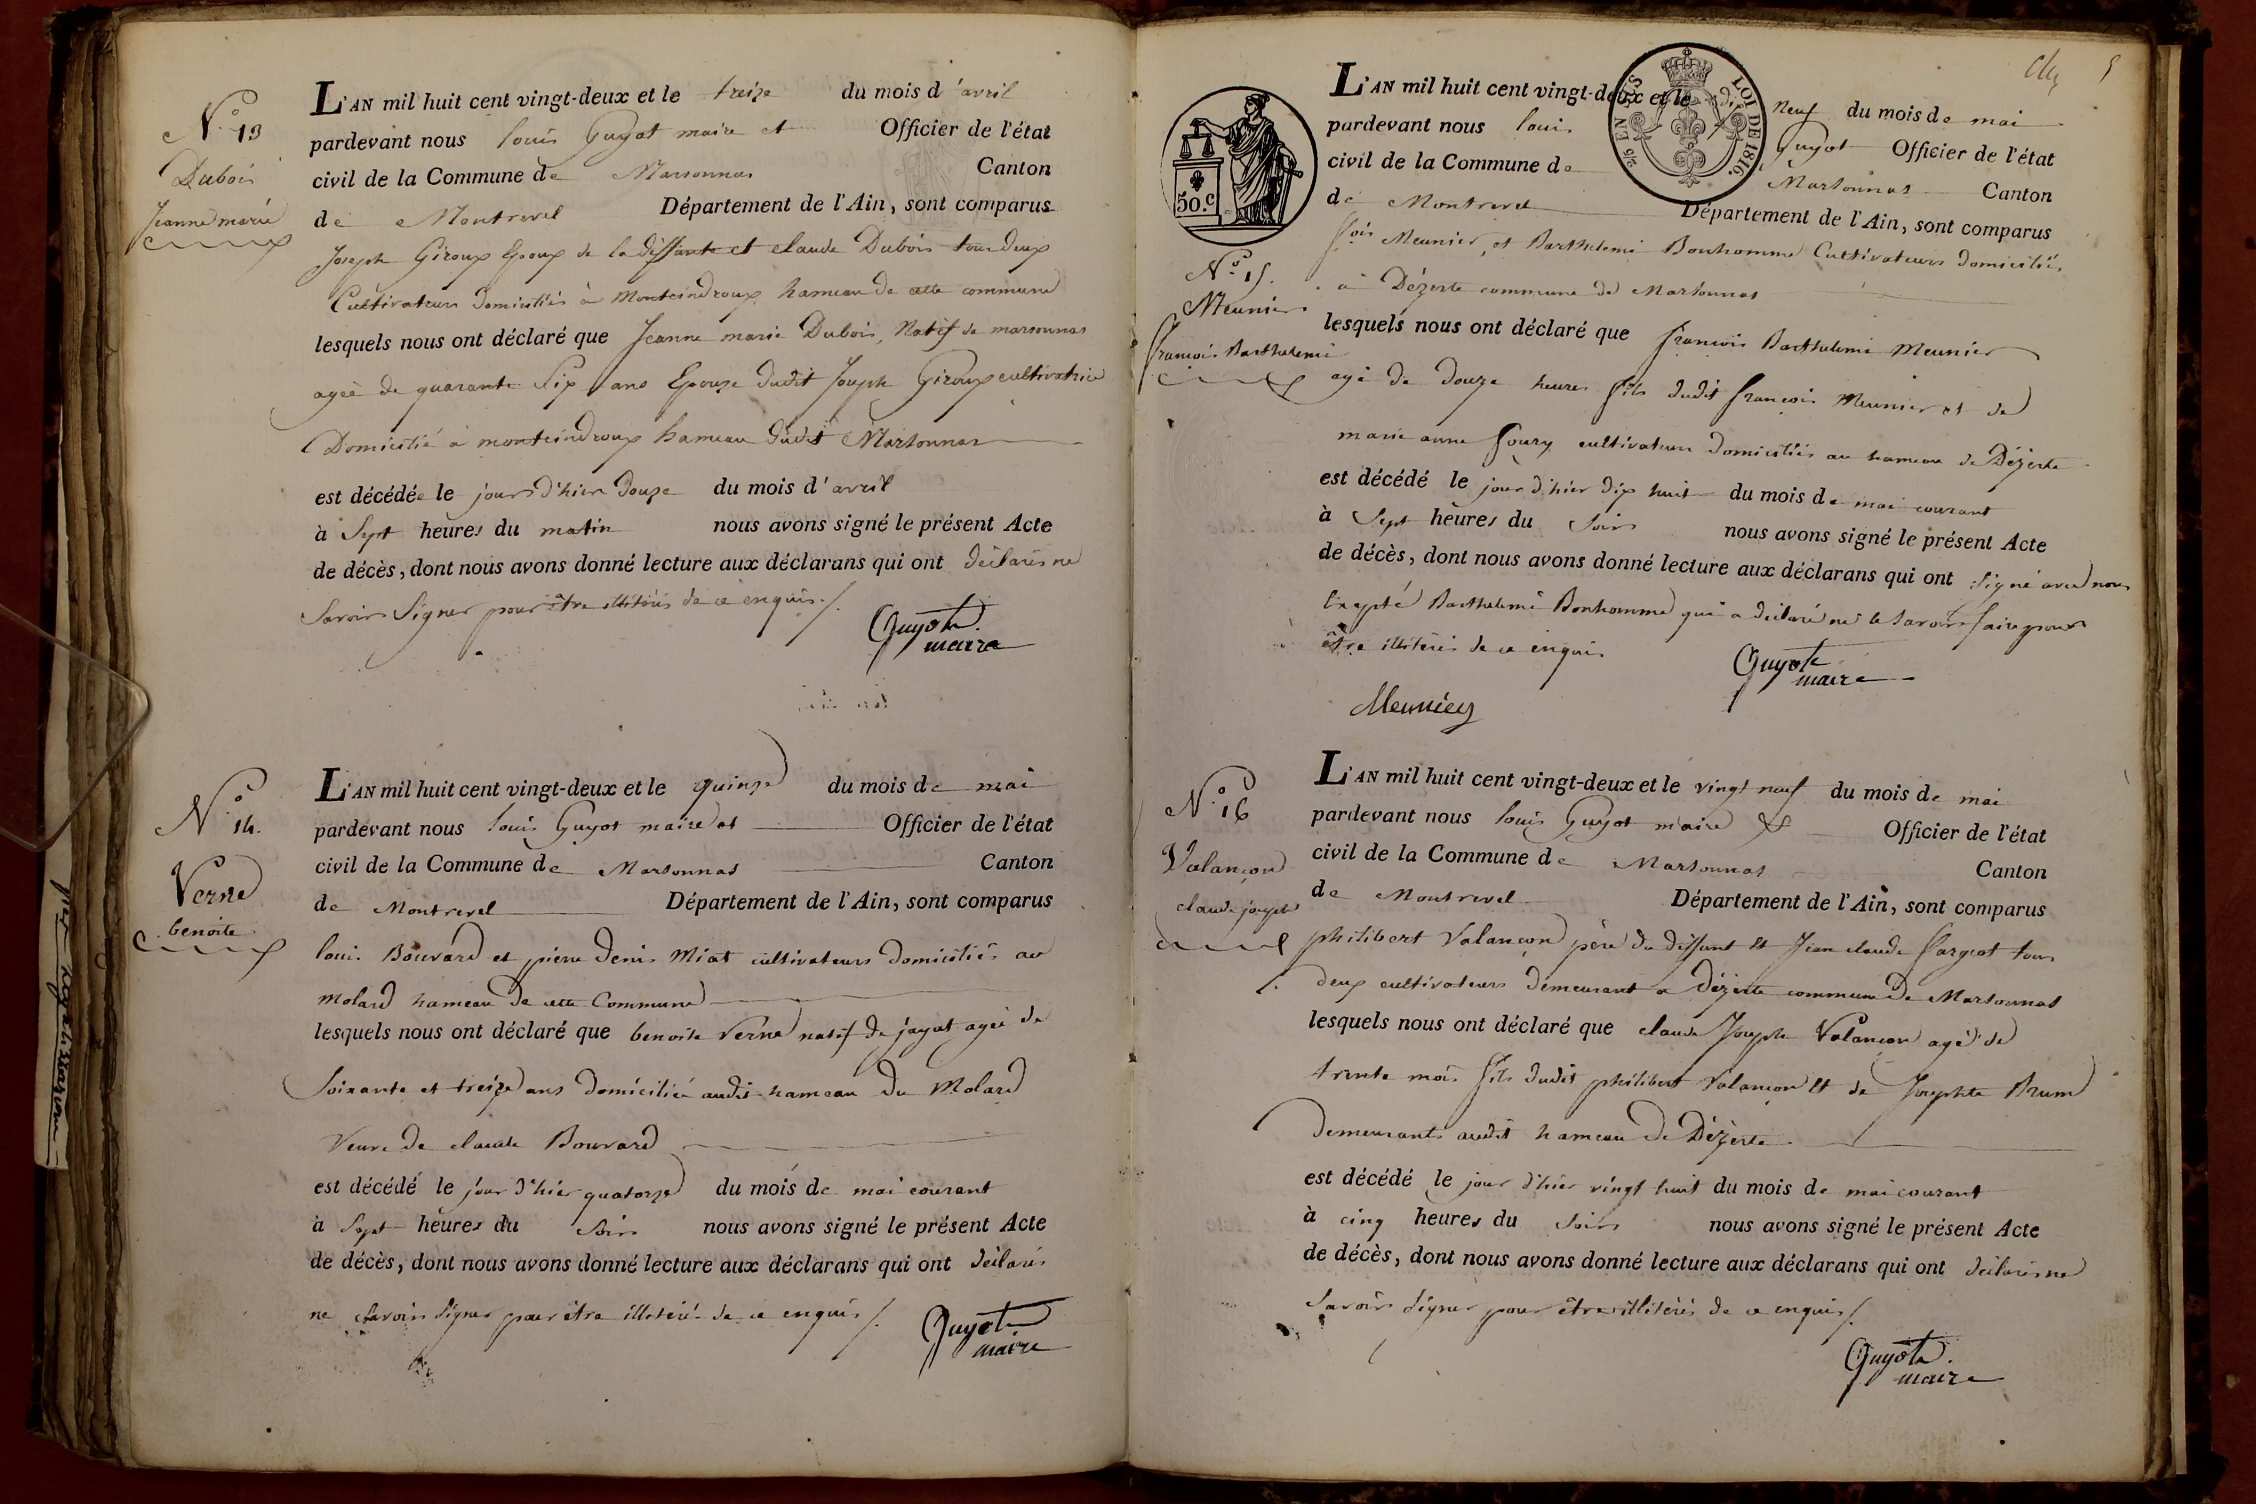 N.o 13
Dubois
Jeanne marie
L'AN mil huit cent vingt-deux et le treize du mois d'avril
pardevant nous louis Guyot maire et Officier de l'état
civil de la Commune de Marsonnas Canton
de Montrevel Département de l'Ain, sont comparus
Joseph Giroux Epoux de la deffunte et claude Dubois tous deux
Cultivateurs domiciliés à Monteindroux hameau de cette commune
lesquels nous ont déclaré que Jeanne marie Dubois, Natif de marsonnas
agée de quarante Six ans Epouse dudit Joseph Giroux cultivatrice
Domicilié à monteindroux hameau dudit Marsonnas
est décédée le jour d'hier douze du mois d'avril
à Sept heures du matin nous avons signé le présent Acte
de décès, dont nous avons donné lecture aux déclarans qui ont déclarés ne
Savoir Signer pour être illitérés de ce enquis ./.
Guyot
maire
N.o 14.
Verne
benoite
L'AN mil huit cent vingt-deux et le quinze du mois de mai
pardevant nous louis Guyot maire et Officier de l'état
civil de la Commune de Marsonnas Canton
de Montrevel Département de l'Ain, sont comparus
louis Bouvard et pierre denis Miat cultivateurs domiciliés au
molard hameau de cette Commune
lesquels nous ont déclaré que benoite Verne natif de jayat agée de
Soixante et treize ans domiciliée audit hameau du Molard
Veuve de claude Bouvard
est décédé le jour d'hier quatorze du mois de mai courant
à Sept heures du Soir nous avons signé le présent Acte
de décès, dont nous avons donné lecture aux déclarans qui ont déclarés
ne Savoir Signer pour être illitérés de ce enquis ./.
Guyot
maire
5
EN SUS
LOI DE 1816.
50.c
N.o 15.
Meunier
françois Barthelemi
L'AN mil huit cent vingt-deux et le Neuf du mois de mai
pardevant nous louis Guyot Officier de l'état
civil de la Commune de Marsonnas Canton
de Montrevel Département de l'Ain, sont comparus
fois Meunier, et Barthelemi Bonhomme Cultivateurs domiciliés
à Dézerte commune de Marsonnas
lesquels nous ont déclaré que françois Barthelemi Meunier
agé de douze heures fils dudit françois Meunier et de
marie anne foury cultivateurs domiciliés au hameau de Dézerte
est décédé le jour d'hier dix huit du mois de mai courant
à Sept heures du Soir nous avons signé le présent Acte
de décès, dont nous avons donné lecture aux déclarans qui ont Signé avec nous
Excepté Barthelemi Bonhomme qui a déclaré ne le Savoir faire pour
être illitérés de ce enquis
Guyot
maire
Meunier
N.o 16
Valançon
claude joseph
L'AN mil huit cent vingt-deux et le vingt neuf du mois de mai
pardevant nous louis Guyot maire & Officier de l'état
civil de la Commune de Marsonnas Canton
de Montrevel Département de l'Ain, sont comparus
philibert Valançon père du deffunt et Jean claude fargeot tous
deux cultivateurs demeurant a Dézerte commune de Marsonnas
lesquels nous ont déclaré que claude Joseph Valançon agé de
trente mois fils dudit philibert Valançon et de Josephte Brum
demeurants audit hameau de Dézerte
est décédé le jour d'hier vingt huit du mois de mai courant
à cinq heures du Soir nous avons signé le présent Acte
de décès, dont nous avons donné lecture aux déclarans qui ont déclarés ne
Savoir Signer pour être illitérés de ce enquis ./.
Guyot
maire